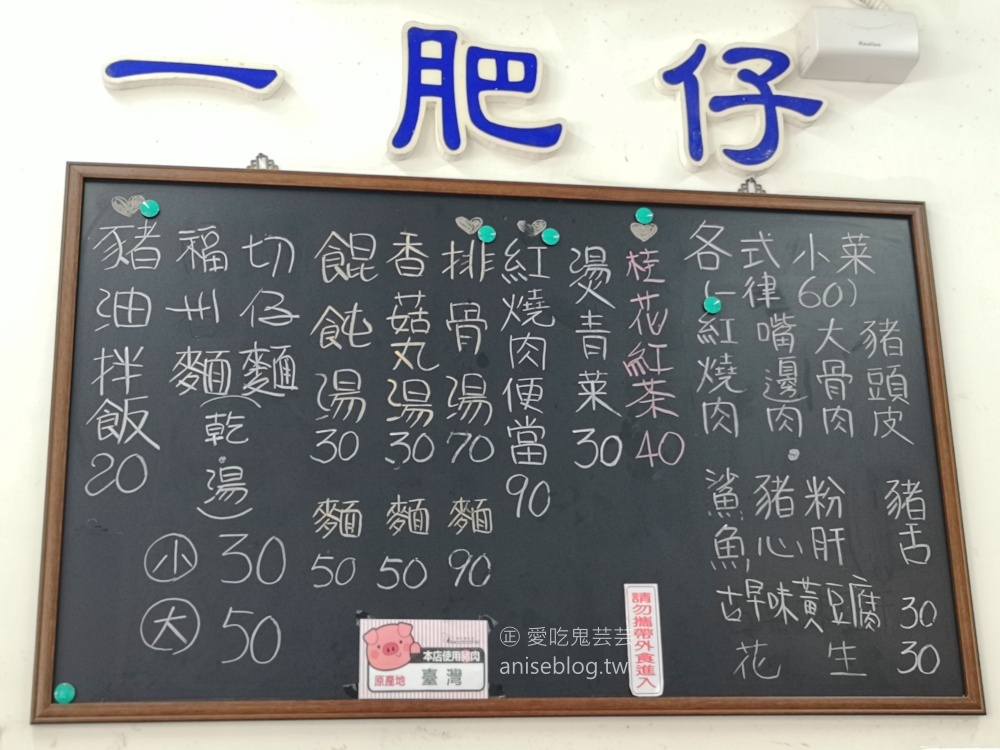 一肥仔
Realtec
豬油拌飯20
福州麵
切仔麵
(乾.湯)
小30
大50
餛飩湯30
麵50
香菇丸湯30
麵50
排骨湯70
麵90
紅燒肉便當90
燙青菜30
桂花紅茶40
各式小菜
(一律60)
紅燒肉
嘴邊肉
大骨肉
豬頭皮
鯊魚
豬心
粉肝
豬舌
古早味黃豆腐30
花生30
本店使用豬肉
原產地 臺灣
請勿攜帶外食進入
㊣ 愛吃鬼芸芸
aniseblog.tw